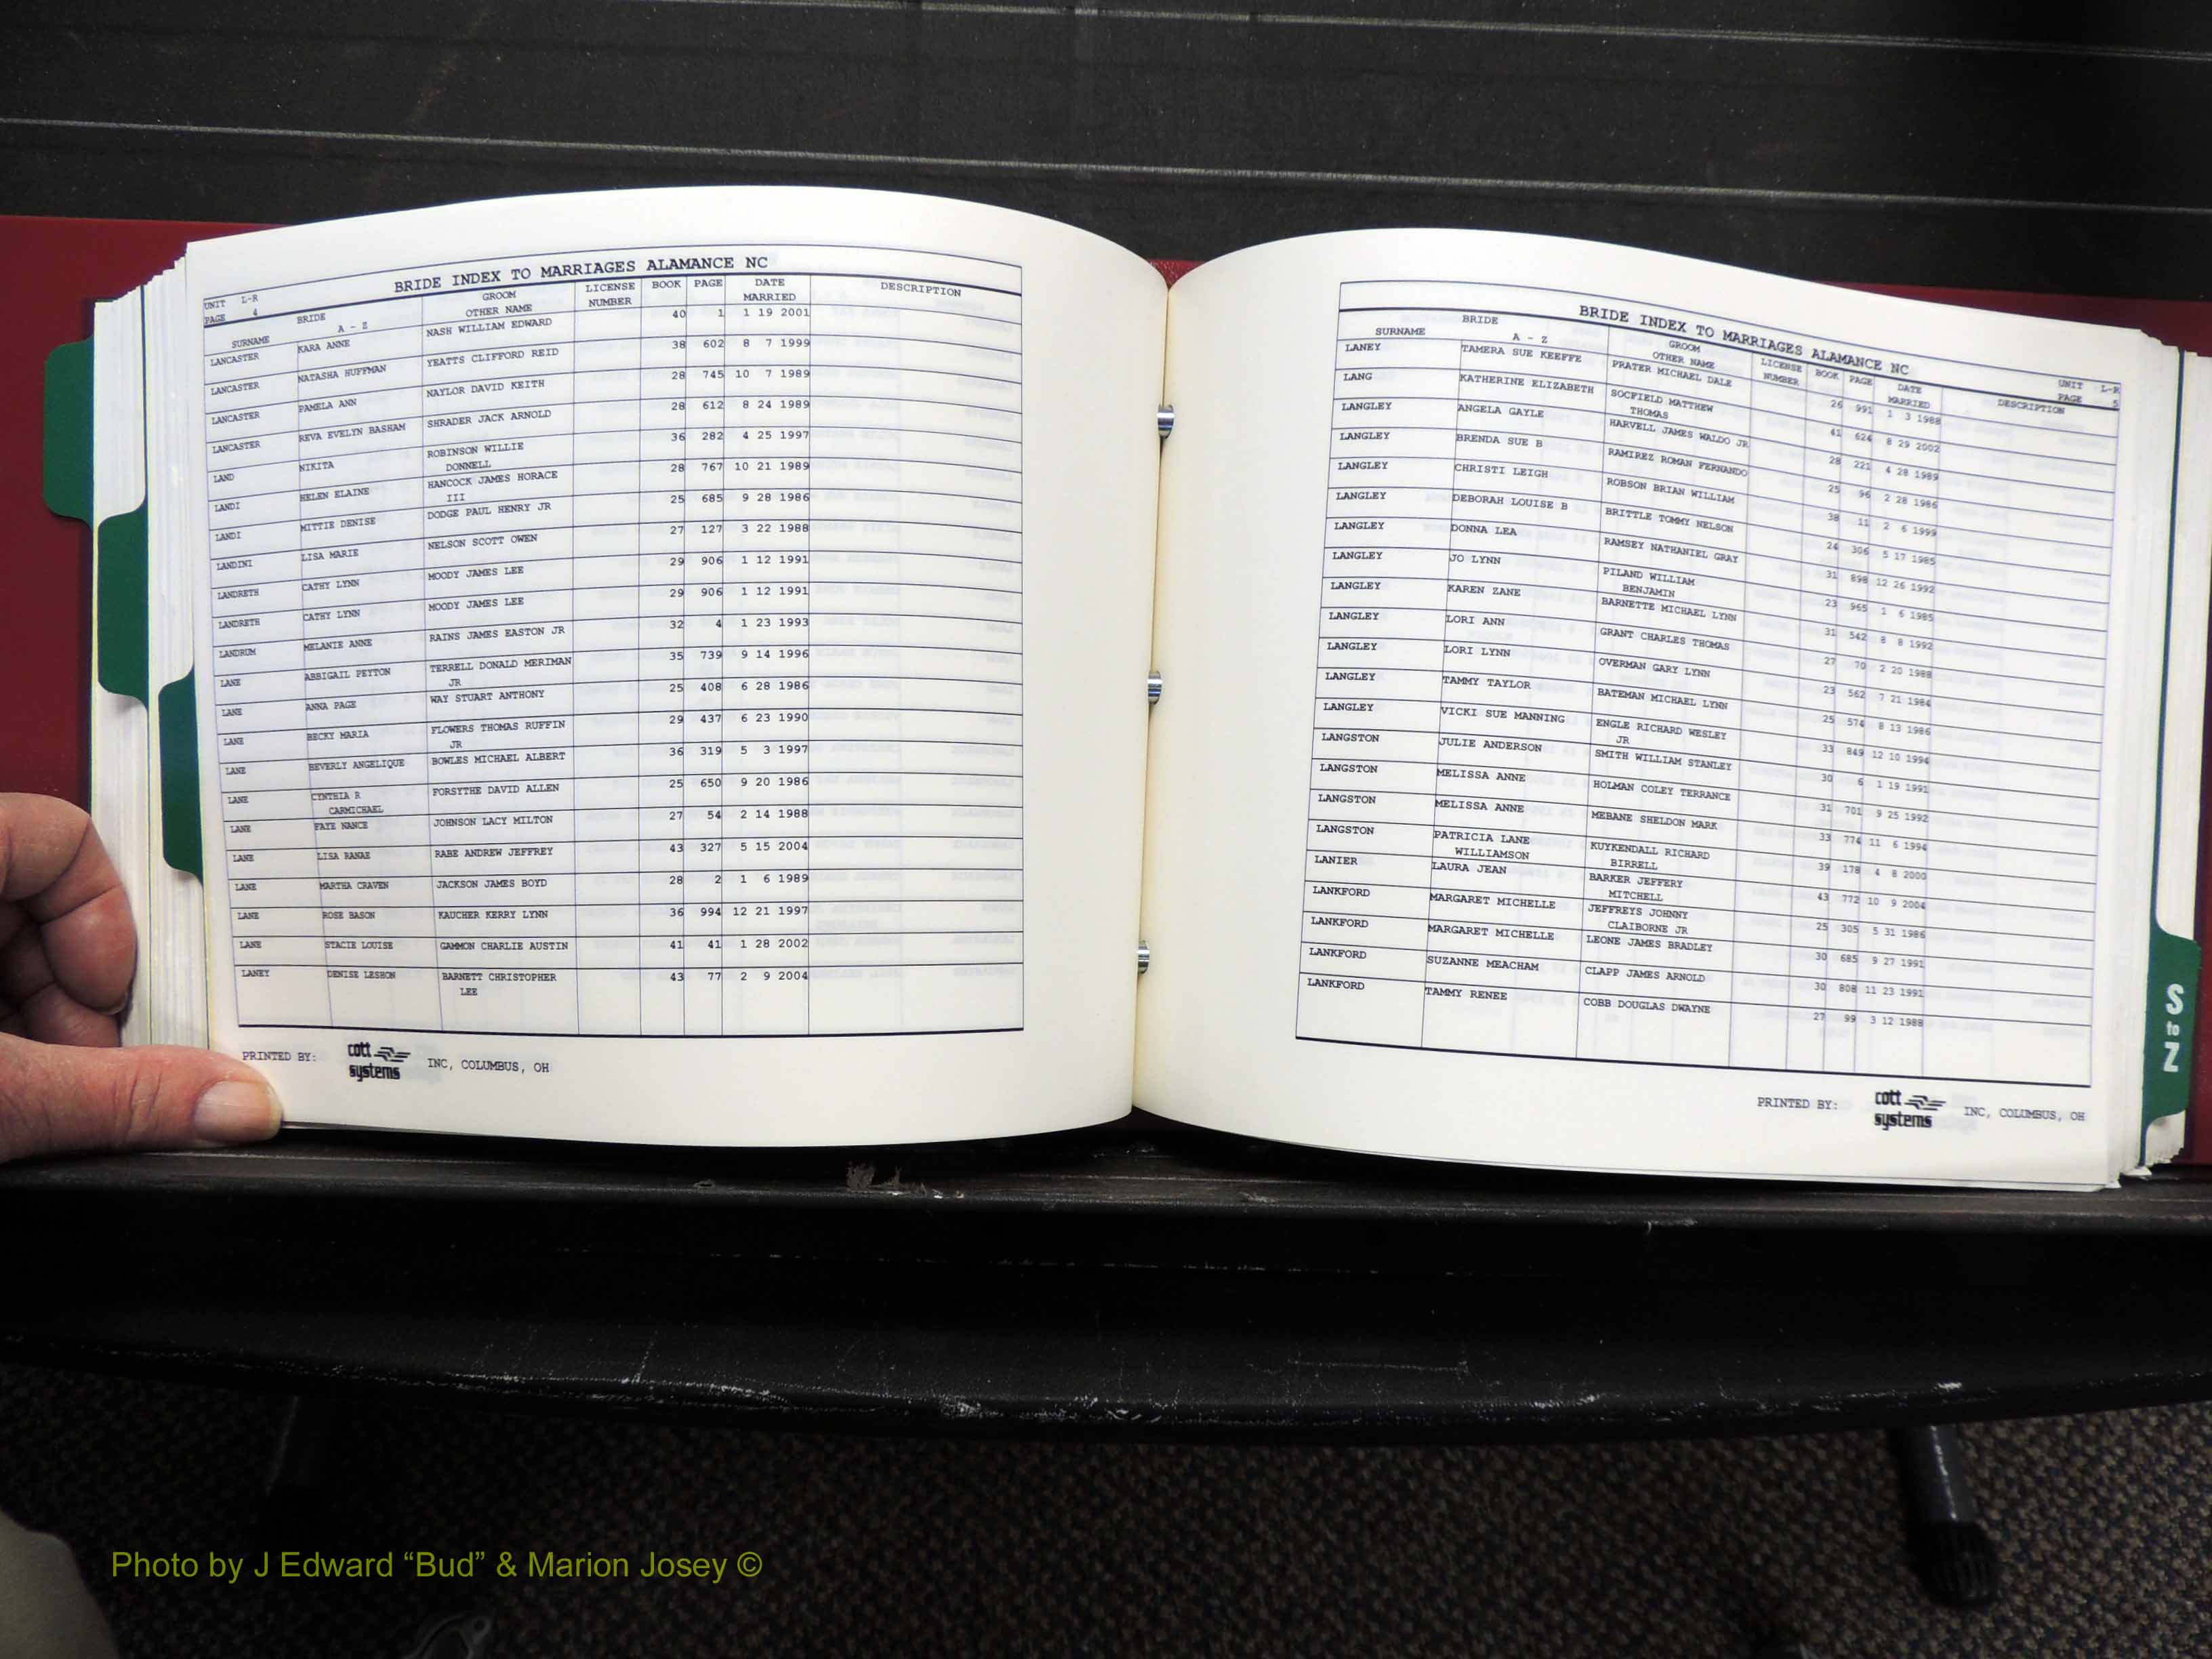 BRIDE INDEX TO MARRIAGES ALAMANCE NC
UNIT L-R
PAGE 4
SURNAME BRIDE A - Z GROOM OTHER NAME LICENSE NUMBER BOOK PAGE DATE MARRIED DESCRIPTION
LANCASTER KARA ANNE NASH WILLIAM EDWARD 40 1 1 19 2001
LANCASTER NATASHA HUFFMAN YEATTS CLIFFORD REID 38 602 8 7 1999
LANCASTER PAMELA ANN NAYLOR DAVID KEITH 28 745 10 7 1989
LANCASTER REVA EVELYN BASHAM SHRADER JACK ARNOLD 28 612 8 24 1989
LAND NIKITA ROBINSON WILLIE 36 282 4 25 1997
DONNELL
LANDI HELEN ELAINE HANCOCK JAMES HORACE 28 767 10 21 1989
III
LANDI MITTIE DENISE DODGE PAUL HENRY JR 25 685 9 28 1986
LANDINI LISA MARIE NELSON SCOTT OWEN 27 127 3 22 1988
LANDRETH CATHY LYNN MOODY JAMES LEE 29 906 1 12 1991
LANDRETH CATHY LYNN MOODY JAMES LEE 29 906 1 12 1991
LANDRUM MELANIE ANNE RAINS JAMES EASTON JR 32 4 1 23 1993
LANE ABBIGAIL PEYTON TERRELL DONALD MERIMAN 35 739 9 14 1996
JR
LANE ANNA PAGE WAY STUART ANTHONY 25 408 6 28 1986
LANE BECKY MARIA FLOWERS THOMAS RUFFIN 29 437 6 23 1990
JR
LANE BEVERLY ANGELIQUE BOWLES MICHAEL ALBERT 36 319 5 3 1997
LANE CYNTHIA R FORSYTHE DAVID ALLEN 25 650 9 20 1986
CARMICHAEL
LANE FAYE NANCE JOHNSON LACY MILTON 27 54 2 14 1988
LANE LISA RANAE RABE ANDREW JEFFREY 43 327 5 15 2004
LANE MARTHA CRAVEN JACKSON JAMES BOYD 28 2 1 6 1989
LANE ROSE BASON KAUCHER KERRY LYNN 36 994 12 21 1997
LANE STACIE LOUISE GAMMON CHARLIE AUSTIN 41 41 1 28 2002
LANEY DENISE LESHON BARNETT CHRISTOPHER 43 77 2 9 2004
LEE
PRINTED BY: cott systems INC, COLUMBUS, OH
BRIDE INDEX TO MARRIAGES ALAMANCE NC
UNIT L-R
PAGE 5
SURNAME BRIDE A - Z GROOM OTHER NAME LICENSE NUMBER BOOK PAGE DATE MARRIED DESCRIPTION
LANEY TAMERA SUE KEEFFE PRATER MICHAEL DALE 26 991 1 3 1988
LANG KATHERINE ELIZABETH SOCFIELD MATTHEW 41 624 8 29 2002
THOMAS
LANGLEY ANGELA GAYLE HARVELL JAMES WALDO JR 28 221 4 28 1989
LANGLEY BRENDA SUE B RAMIREZ ROMAN FERNANDO 25 96 2 28 1986
LANGLEY CHRISTI LEIGH ROBSON BRIAN WILLIAM 38 11 2 6 1999
LANGLEY DEBORAH LOUISE B BRITTLE TOMMY NELSON 24 306 5 17 1985
LANGLEY DONNA LEA RAMSEY NATHANIEL GRAY 31 898 12 26 1992
LANGLEY JO LYNN PILAND WILLIAM 23 965 1 6 1985
BENJAMIN
LANGLEY KAREN ZANE BARNETTE MICHAEL LYNN 31 542 8 8 1992
LANGLEY LORI ANN GRANT CHARLES THOMAS 27 70 2 20 1988
LANGLEY LORI LYNN OVERMAN GARY LYNN 23 562 7 21 1984
LANGLEY TAMMY TAYLOR BATEMAN MICHAEL LYNN 25 574 8 13 1986
LANGLEY VICKI SUE MANNING ENGLE RICHARD WESLEY 33 849 12 10 1994
JR
LANGSTON JULIE ANDERSON SMITH WILLIAM STANLEY 30 6 1 19 1991
LANGSTON MELISSA ANNE HOLMAN COLEY TERRANCE 31 701 9 25 1992
LANGSTON MELISSA ANNE MEBANE SHELDON MARK 33 774 11 6 1994
LANGSTON PATRICIA LANE KUYKENDALL RICHARD 39 178 4 8 2000
WILLIAMSON BIRRELL
LANIER LAURA JEAN BARKER JEFFERY 43 772 10 9 2004
MITCHELL
LANKFORD MARGARET MICHELLE JEFFREYS JOHNNY 25 305 5 31 1986
CLAIBORNE JR
LANKFORD MARGARET MICHELLE LEONE JAMES BRADLEY 30 685 9 27 1991
LANKFORD SUZANNE MEACHAM CLAPP JAMES ARNOLD 30 808 11 23 1991
LANKFORD TAMMY RENEE COBB DOUGLAS DWAYNE 27 99 3 12 1988
PRINTED BY: cott systems INC, COLUMBUS, OH
S to Z
Photo by J Edward “Bud” & Marion Josey ©